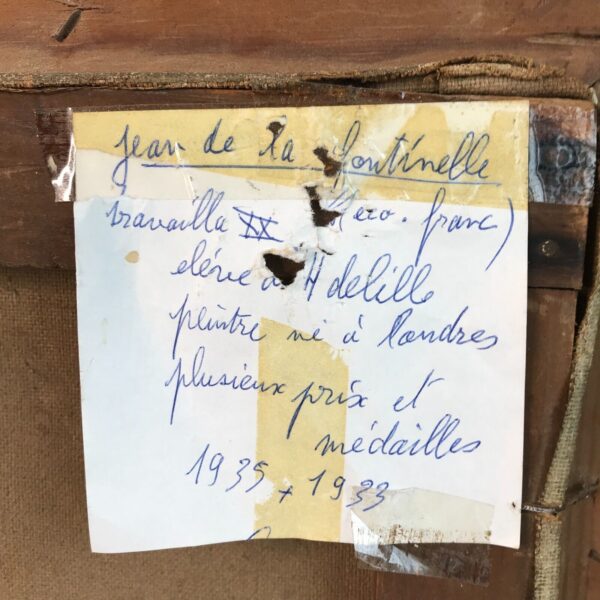 jean de la Fontinelle
travailla XX franc)
elève H delille
peintre né à Londres
plusieux prix et
médailles
1935 + 1933